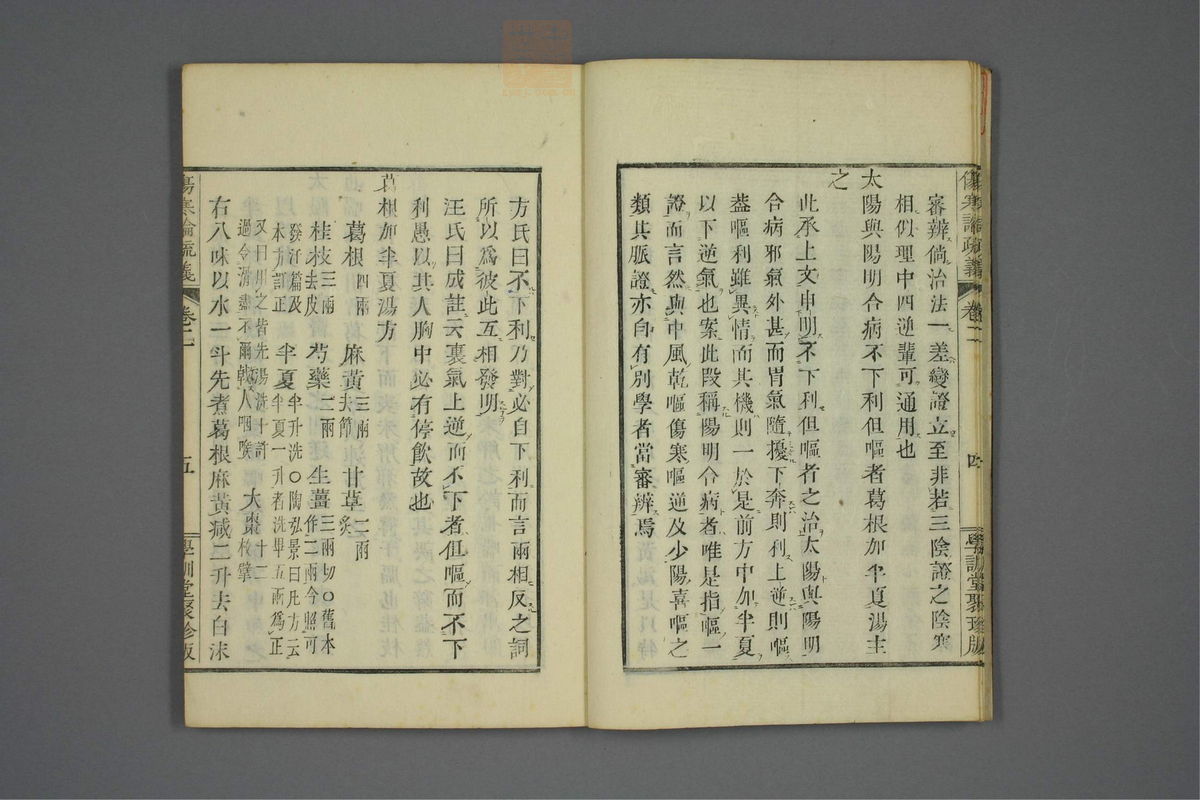 傷寒論疏義
卷二
四
學訓堂聚珍版
審辨倘治法一差變證立至非若三陰證之陰寒
相似理中四逆輩可通用也
太陽與陽明合病不下利但嘔者葛根加半夏湯主
之
此承上文申明不下利但嘔者之治太陽與陽明
合病邪氣外甚而胃氣隨擾下奔則利上逆則嘔
葢嘔利雖異情而其機則一於是前方中加半夏
以下逆氣也案此段稱陽明合病者唯是指嘔一
證而言然與中風乾嘔傷寒嘔逆及少陽喜嘔之
類其脈證亦自有別學者當審辨焉
方氏曰不下利乃對必自下利而言兩相反之詞
所以爲彼此互相發明
汪氏曰成註云裏氣上逆而不下者但嘔而不下
利愚以其人胸中必有停飲故也
葛根加半夏湯方
葛根四兩 麻黃三兩去節 甘草二兩炙
桂枝三兩去皮 芍藥二兩 生薑三兩切○舊本作二兩今照可
發汗篇及本方訂正 半夏半升洗○陶弘景曰凡方云半夏一升者洗畢五兩爲正
又曰用之皆先湯洗十許過令滑盡不爾戟人咽喉 大棗十二枚擘
右八味以水一斗先煮葛根麻黃減二升去白沫
傷寒論疏義
卷二
五
學訓堂聚珍版